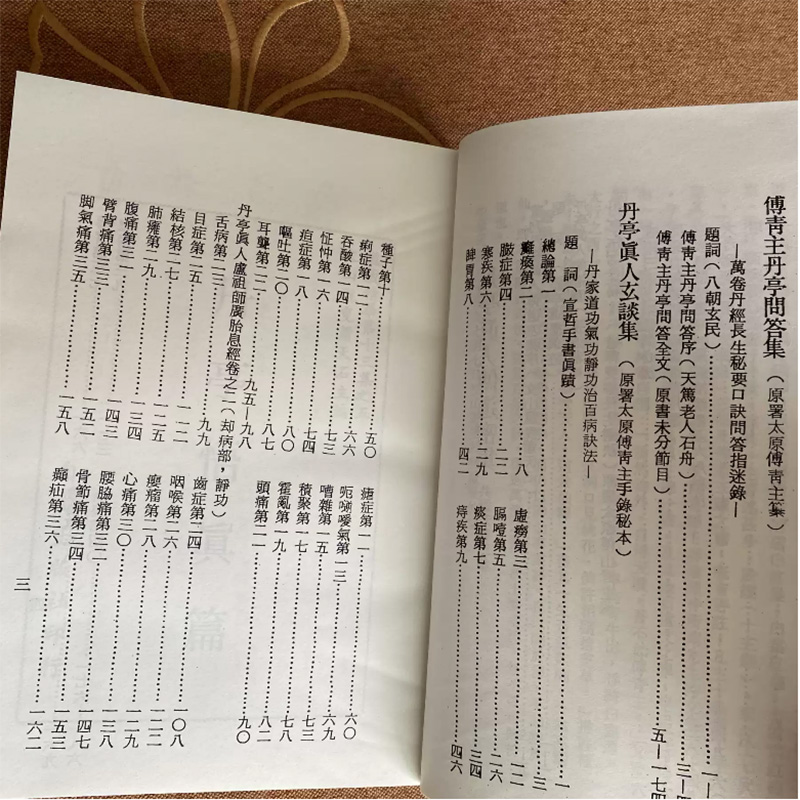 傅靑主丹亭問答集（原署太原傅靑主纂）
—萬卷丹經長生秘要口訣問答指迷錄—
題詞（八朝玄民）……………一—
傅靑主丹亭問答序（天篤老人石舟）……………三—四
傅靑主丹亭問答全文（原書未分節目）……………五—一七四
丹亭眞人玄談集（原署太原傅靑主手錄秘本）
—丹家道功氣功靜功治百病訣法—
題　詞（宣哲手書眞蹟）……………一
總論第一……………三
癱瘓第二……………八　虛癆第三……………一二
臌症第四……………二二　膈噎第五……………二六
寒疾第六……………二九　痰症第七……………三四
脾胃第八……………四二　痔疾第九……………四六
種子第十……………五〇　瘧症第一一……………六〇
痢症第一二……………六六　呃逆噯氣第一三……………六九
吞酸第一四……………　嘈雜第一五……………七三
怔忡第一六……………七四　積聚第一七……………七八
疸症第一八……………八〇　霍亂第一九……………八二
嘔吐第二〇……………八七　頭痛第二一……………九〇
耳聾第二二……………九五—九八
丹亭眞人盧祖師廣胎息經卷之二（却病部，靜功）
舌病第二三……………九九　齒症第二四……………一〇八
目症第二五……………一一二　咽喉第二六……………一二二
結核第二七……………一二五　癭瘤第二八……………一二九
肺癰第二九……………一三四　心痛第三〇……………一三八
腹痛第三一……………一四三　腰脇痛第三二……………一四七
臂背痛第三三……………一五二　骨節痛第三四……………一五三
脚氣痛第三五……………一五八　癲疝第三六……………一六二
三